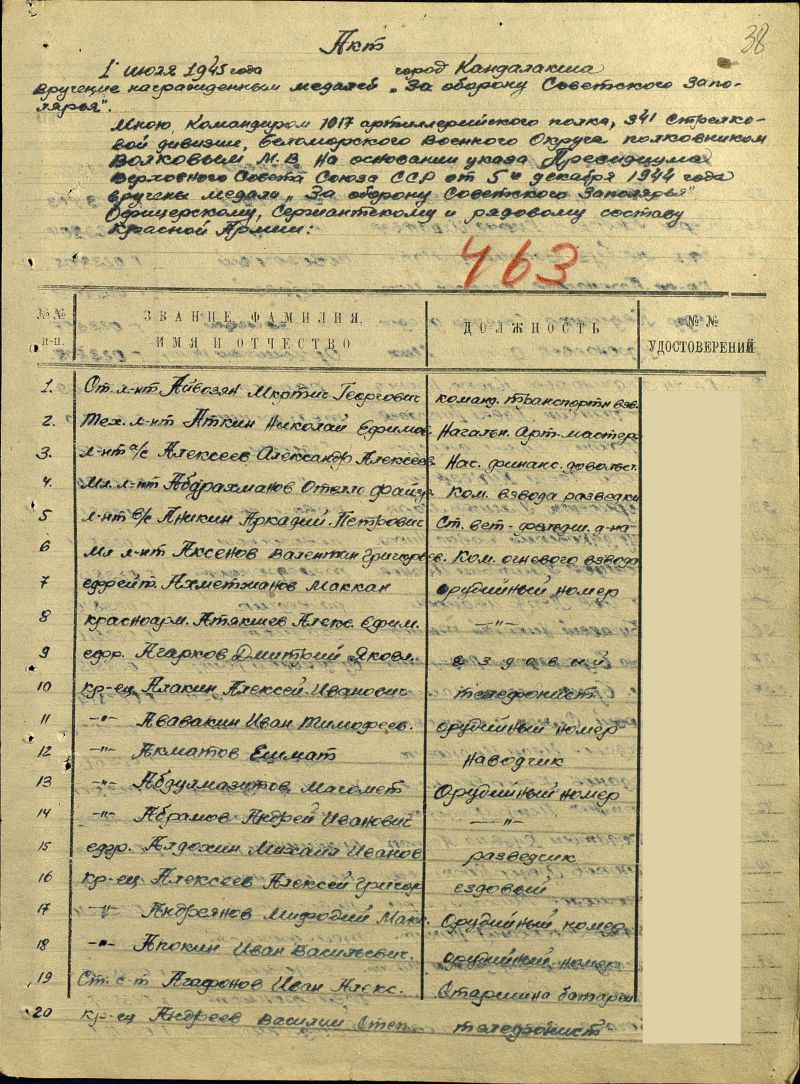 38
Акт
1 июля 1945 года город Кандалакша
вручение награжденным медалей „За оборону Советского Запо-
лярья".
Мною, Командиром 1017 артиллерийского полка, 341 стрелко-
вой дивизии, Беломорского Военного Округа полковником
Волковым М.В. на основании указа Президиума
Верховного Совета Союза ССР от 5го декабря 1944 года
вручены медали „За оборону Советского Заполярья"
Офицерскому, Сержантскому и рядовому составу
Красной Армии:
463
№№ п-п. ЗВАНИЕ, ФАМИЛИЯ, ИМЯ И ОТЧЕСТВО ДОЛЖНОСТЬ №№ УДОСТОВЕРЕНИЙ
1. Ст. л-нт Айвозян Мкртич Георгович команд. транспортн взв.
2. Тех. л-нт Аткин Николай Ефимов. Начальн. Арт. мастерс
3. л-нт а/с Алексеев Александр Алексеев. Нас. финанс. довольст.
4. Мл. л-нт Абдрахманов Отелло Файзр. Ком. взвода разведки
5 л-нт в/с Аникин Аркадий Петрович Ст. вет-фельдш. д-на
6 Мл л-нт Аксенов Валентин Григорьев. Ком. огневого взвода
7 ефрейт. Ахметжанов Маккан орудийный номер
8 красноарм. Атякшев Алекс. Ефим. —"—
9 ефр. Агарков Дмитрий Яковл. ездовый
10 кр-ец Алакин Алексей Иванович телефонист.
11 —"— Ававакин Иван Тимофеев. орудийный номер
12 —"— Акматов Ешмат наводчик
13 —"— Абдулмазитов Магомет Орудийный номер
14 —"— Абрамов Андрей Иванович —"—
15 ефр. Алдохин Михаил Иванов разведчик
16 кр-ец Алексеев Алексей Григор ездовый
17 —"— Андреянов Мифодий Макс. Орудийный номер
18 —"— Апокин Иван Васильевич. орудийный номер
19 Ст. с-т Агафонов Иван Алекс. Старшина батареи
20 кр-ец Андреев Василий Степ. телефонист